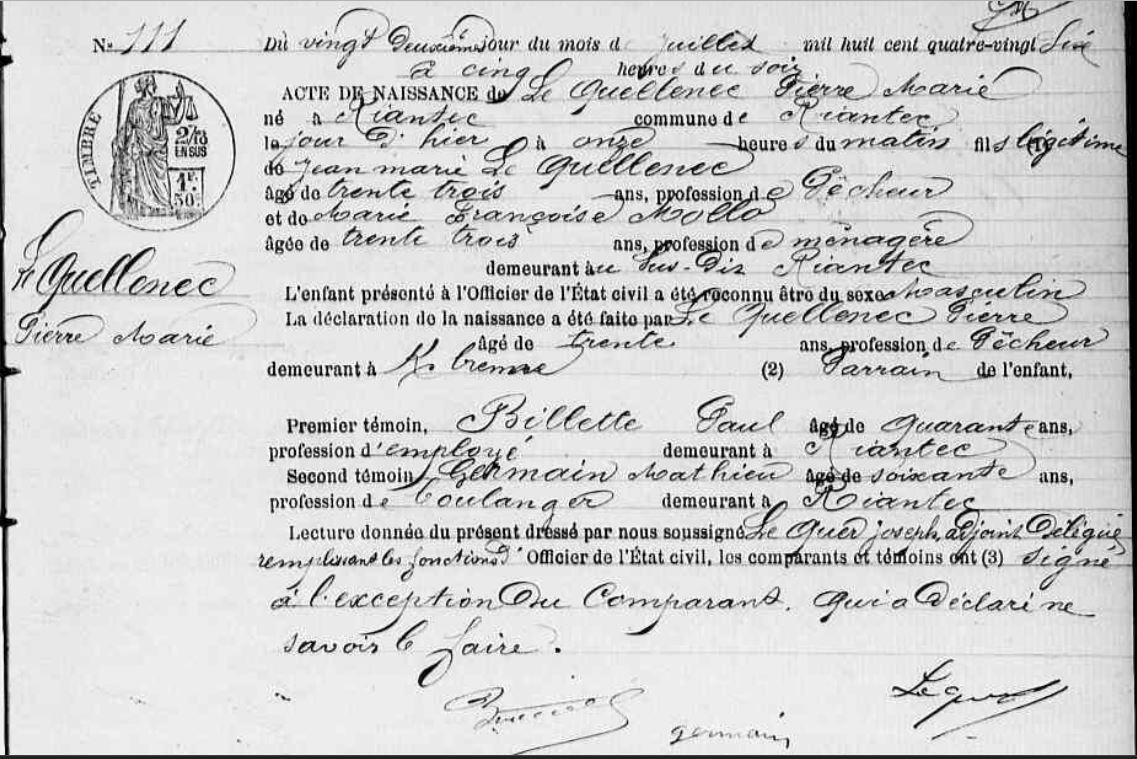 N° 111
Du vingt Deuxième jour du mois de juillet mil huit cent quatre-vingt Six
à cinq heures du soir
ACTE DE NAISSANCE de Le Quellenec Pierre Marie
né à Riantec commune de Riantec
le jour D'hier à onze heures du matin fils légitime
de Jean marie Le Quellenec
âgé de trente trois ans, profession de Pêcheur
et de Marie Françoise Mollo
âgée de trente trois ans, profession de ménagère
demeurant au Sus-Dit Riantec
L'enfant présenté à l'Officier de l'État civil a été reconnu être du sexe Masculin
La déclaration de la naissance a été faite par Le Quellenec Pierre
âgé de trente ans, profession de Pêcheur
demeurant à (2) Parrain de l'enfant,
Premier témoin, Billette Paul âgé de quarante ans,
profession d'employé demeurant à Riantec
Second témoin Germain Mathieu âgé de soixante ans,
profession de boulanger demeurant à Riantec
Lecture donnée du présent dressé par nous soussigné Le Quer joseph, adjoint Délégué
remplissant les fonctions d'Officier de l'État civil, les comparants et témoins ont (3) signé
à l'exception Du Comparant. qui a Déclaré ne
savoir le faire.
TIMBRE
2/10
EN SUS
1F.
50c.
Le Quellenec
Pierre Marie
germain
Lequer